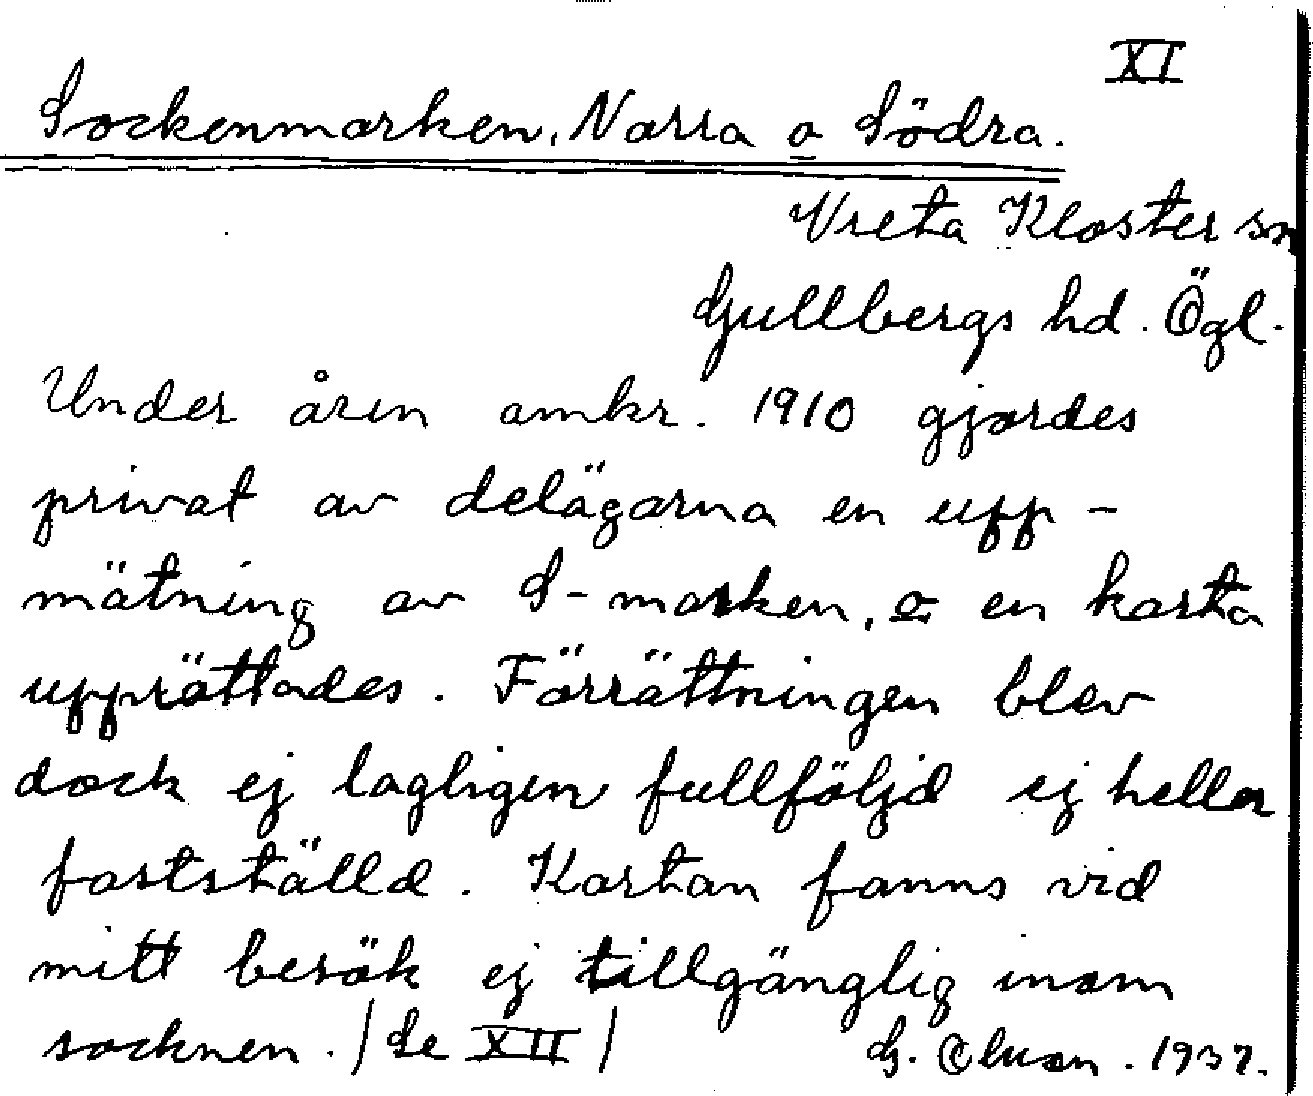 XI
Sockenmarken, Norra o Södra.
Vreta Kloster sn
Gullbergs hd. Ögl.
Under åren omkr. 1910 gjordes
privat av delägarna en upp-
mätning av S-marken, o en karta
upprättades. Förrättningen blev
dock ej lagligen fullföljd ej heller
fastställd. Kartan fanns vid
mitt besök ej tillgänglig inom
socknen. /Se XII/
G. 1937.